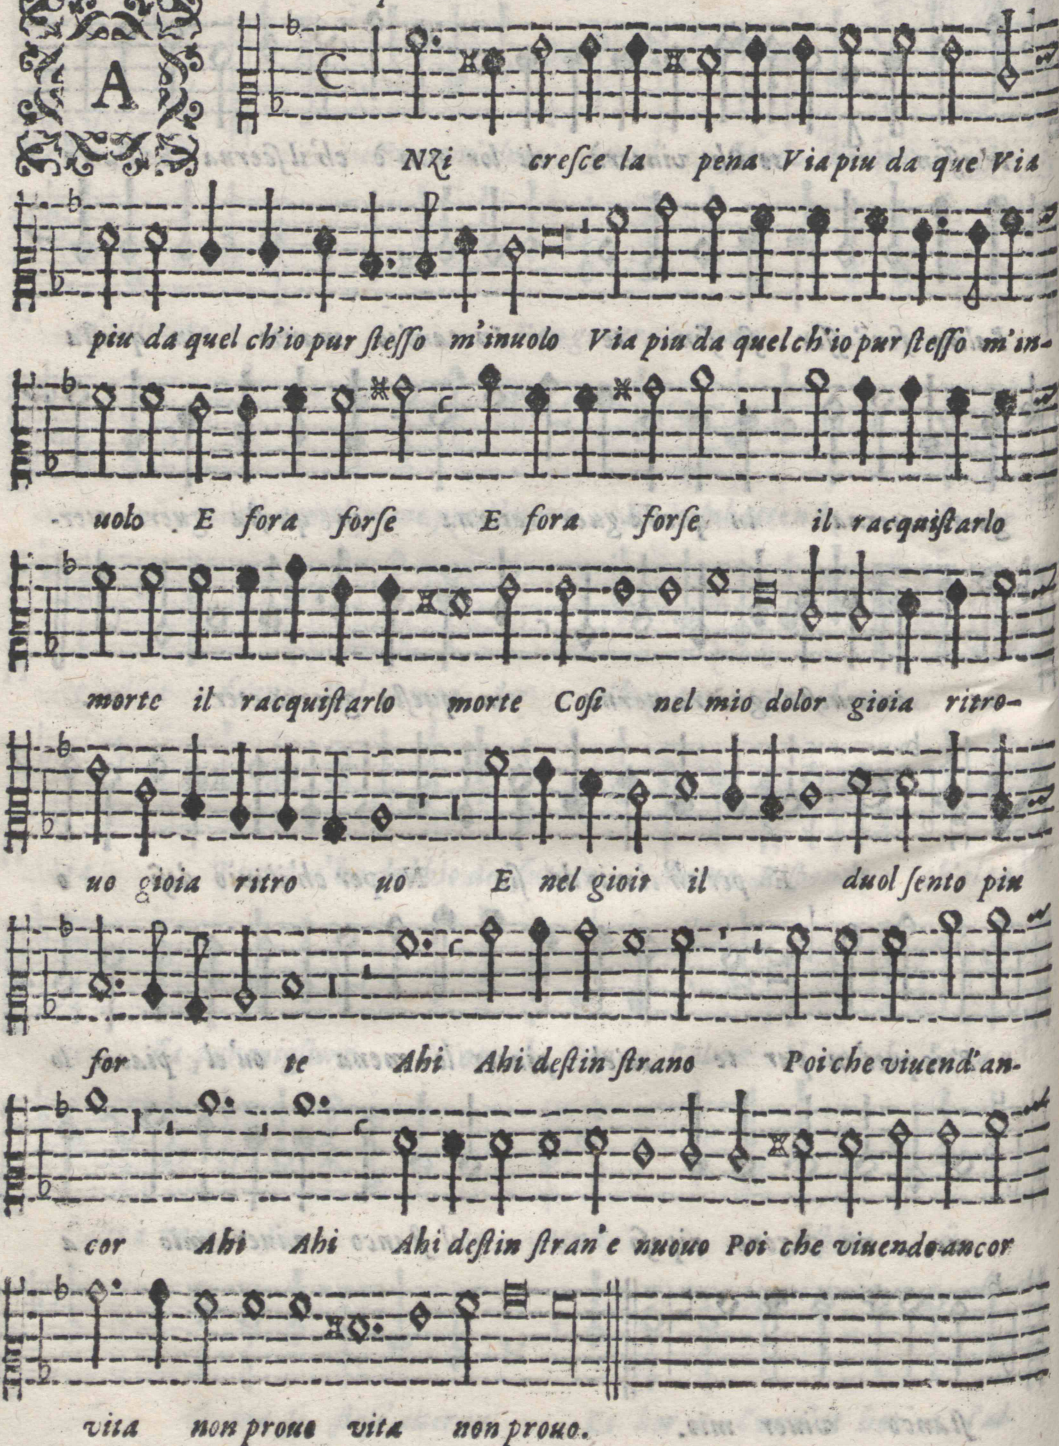 A
NZi creſce la pena Via piu da que' Via
piu da quel ch'io pur ſteſſo m'inuolo Via piu da quel ch'io pur ſteſſo m'in-
uolo E fora forſe E fora forſe il racquiſtarlo
morte il racquiſtarlo morte Coſi nel mio dolor gioia ritro-
uo gioia ritro uo E nel gioir il duol ſento piu
for te Ahi Ahi deſtin ſtrano Poi che viuend'an-
cor Ahi Ahi Ahi deſtin ſtran'e nuouo Poi che viuendo ancor
vita non prouo vita non prouo.